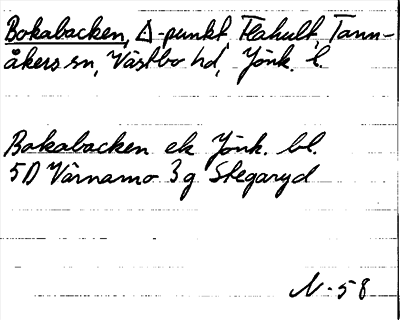 Bokabacken, Δ-punkt, Flahult, Tann-
åkers sn, Västbo hd, Jönk. l.
Bokabacken ek Jönk. bl.
5D Värnamo 3g Skegaryd
N-58